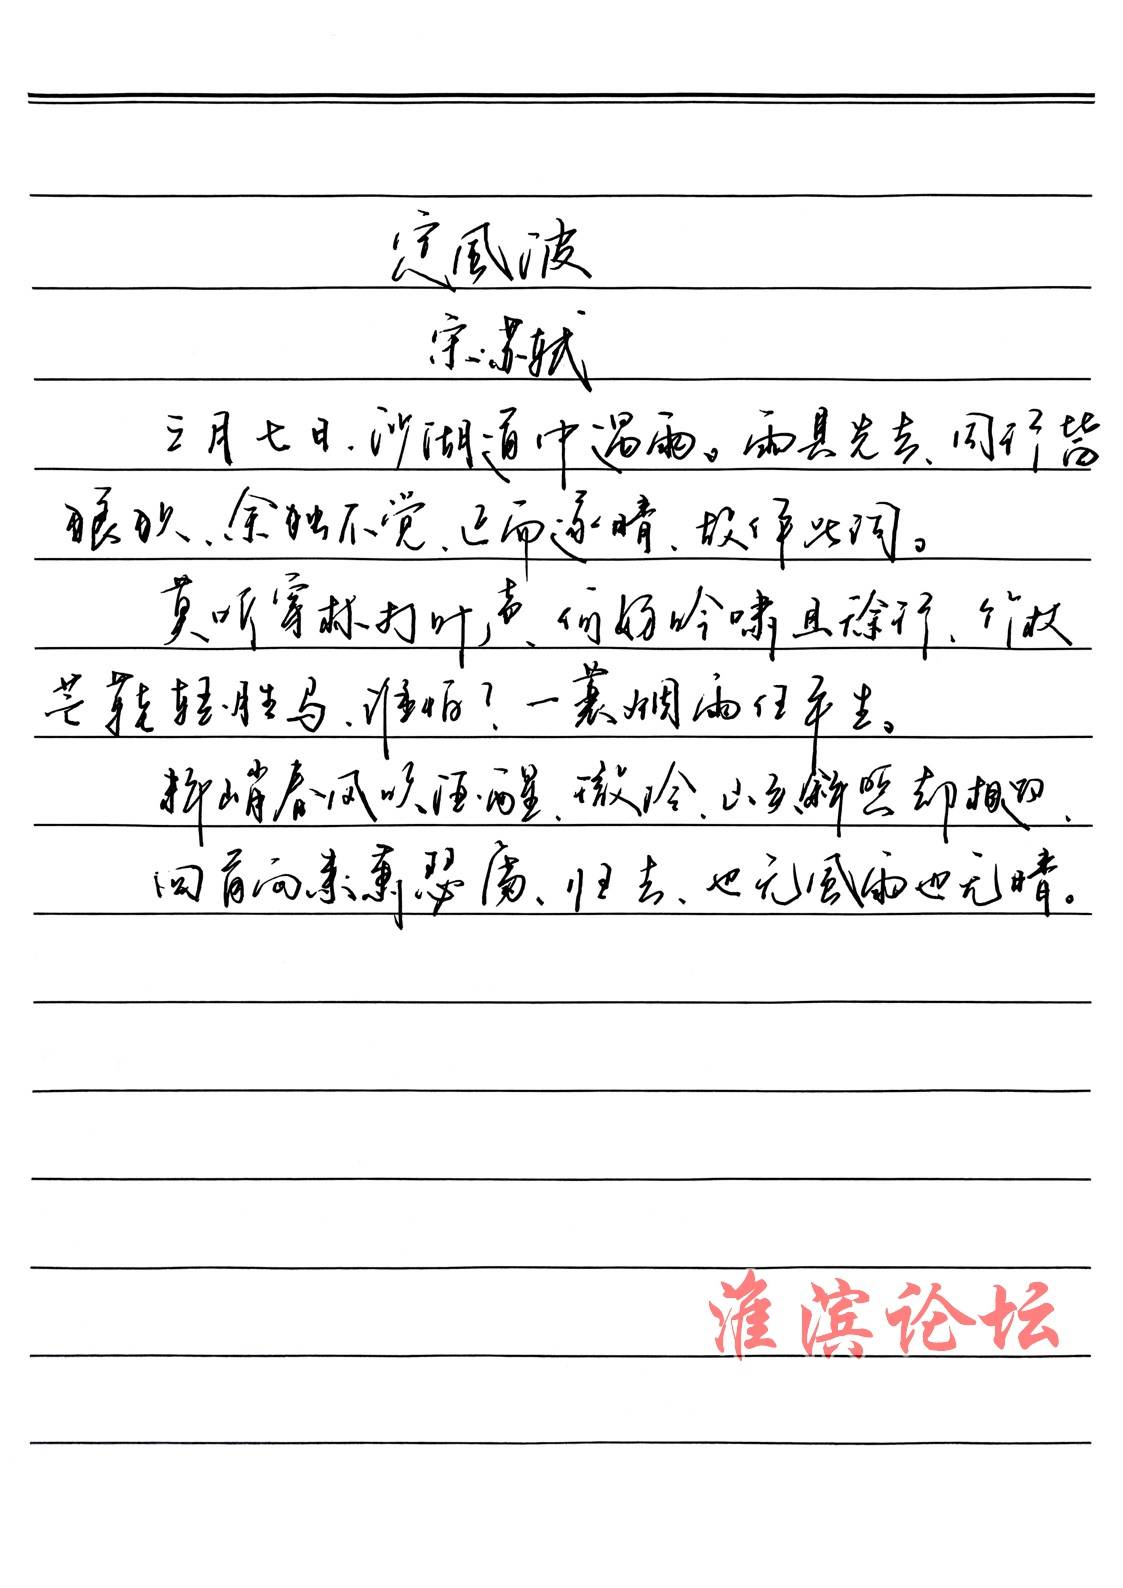 定風波
宋·苏轼
三月七日、沙湖道中遇雨。雨具先去、同行皆
狼狈、余独不觉、已而遂晴、故作此词。
莫听穿林打叶声、何妨吟啸且徐行、竹杖
芒鞋轻胜马、谁怕？一蓑烟雨任平生。
料峭春风吹酒醒、微冷、山头斜照却相迎、
回首向来萧瑟处、归去、也无風雨也无晴。
淮滨论坛